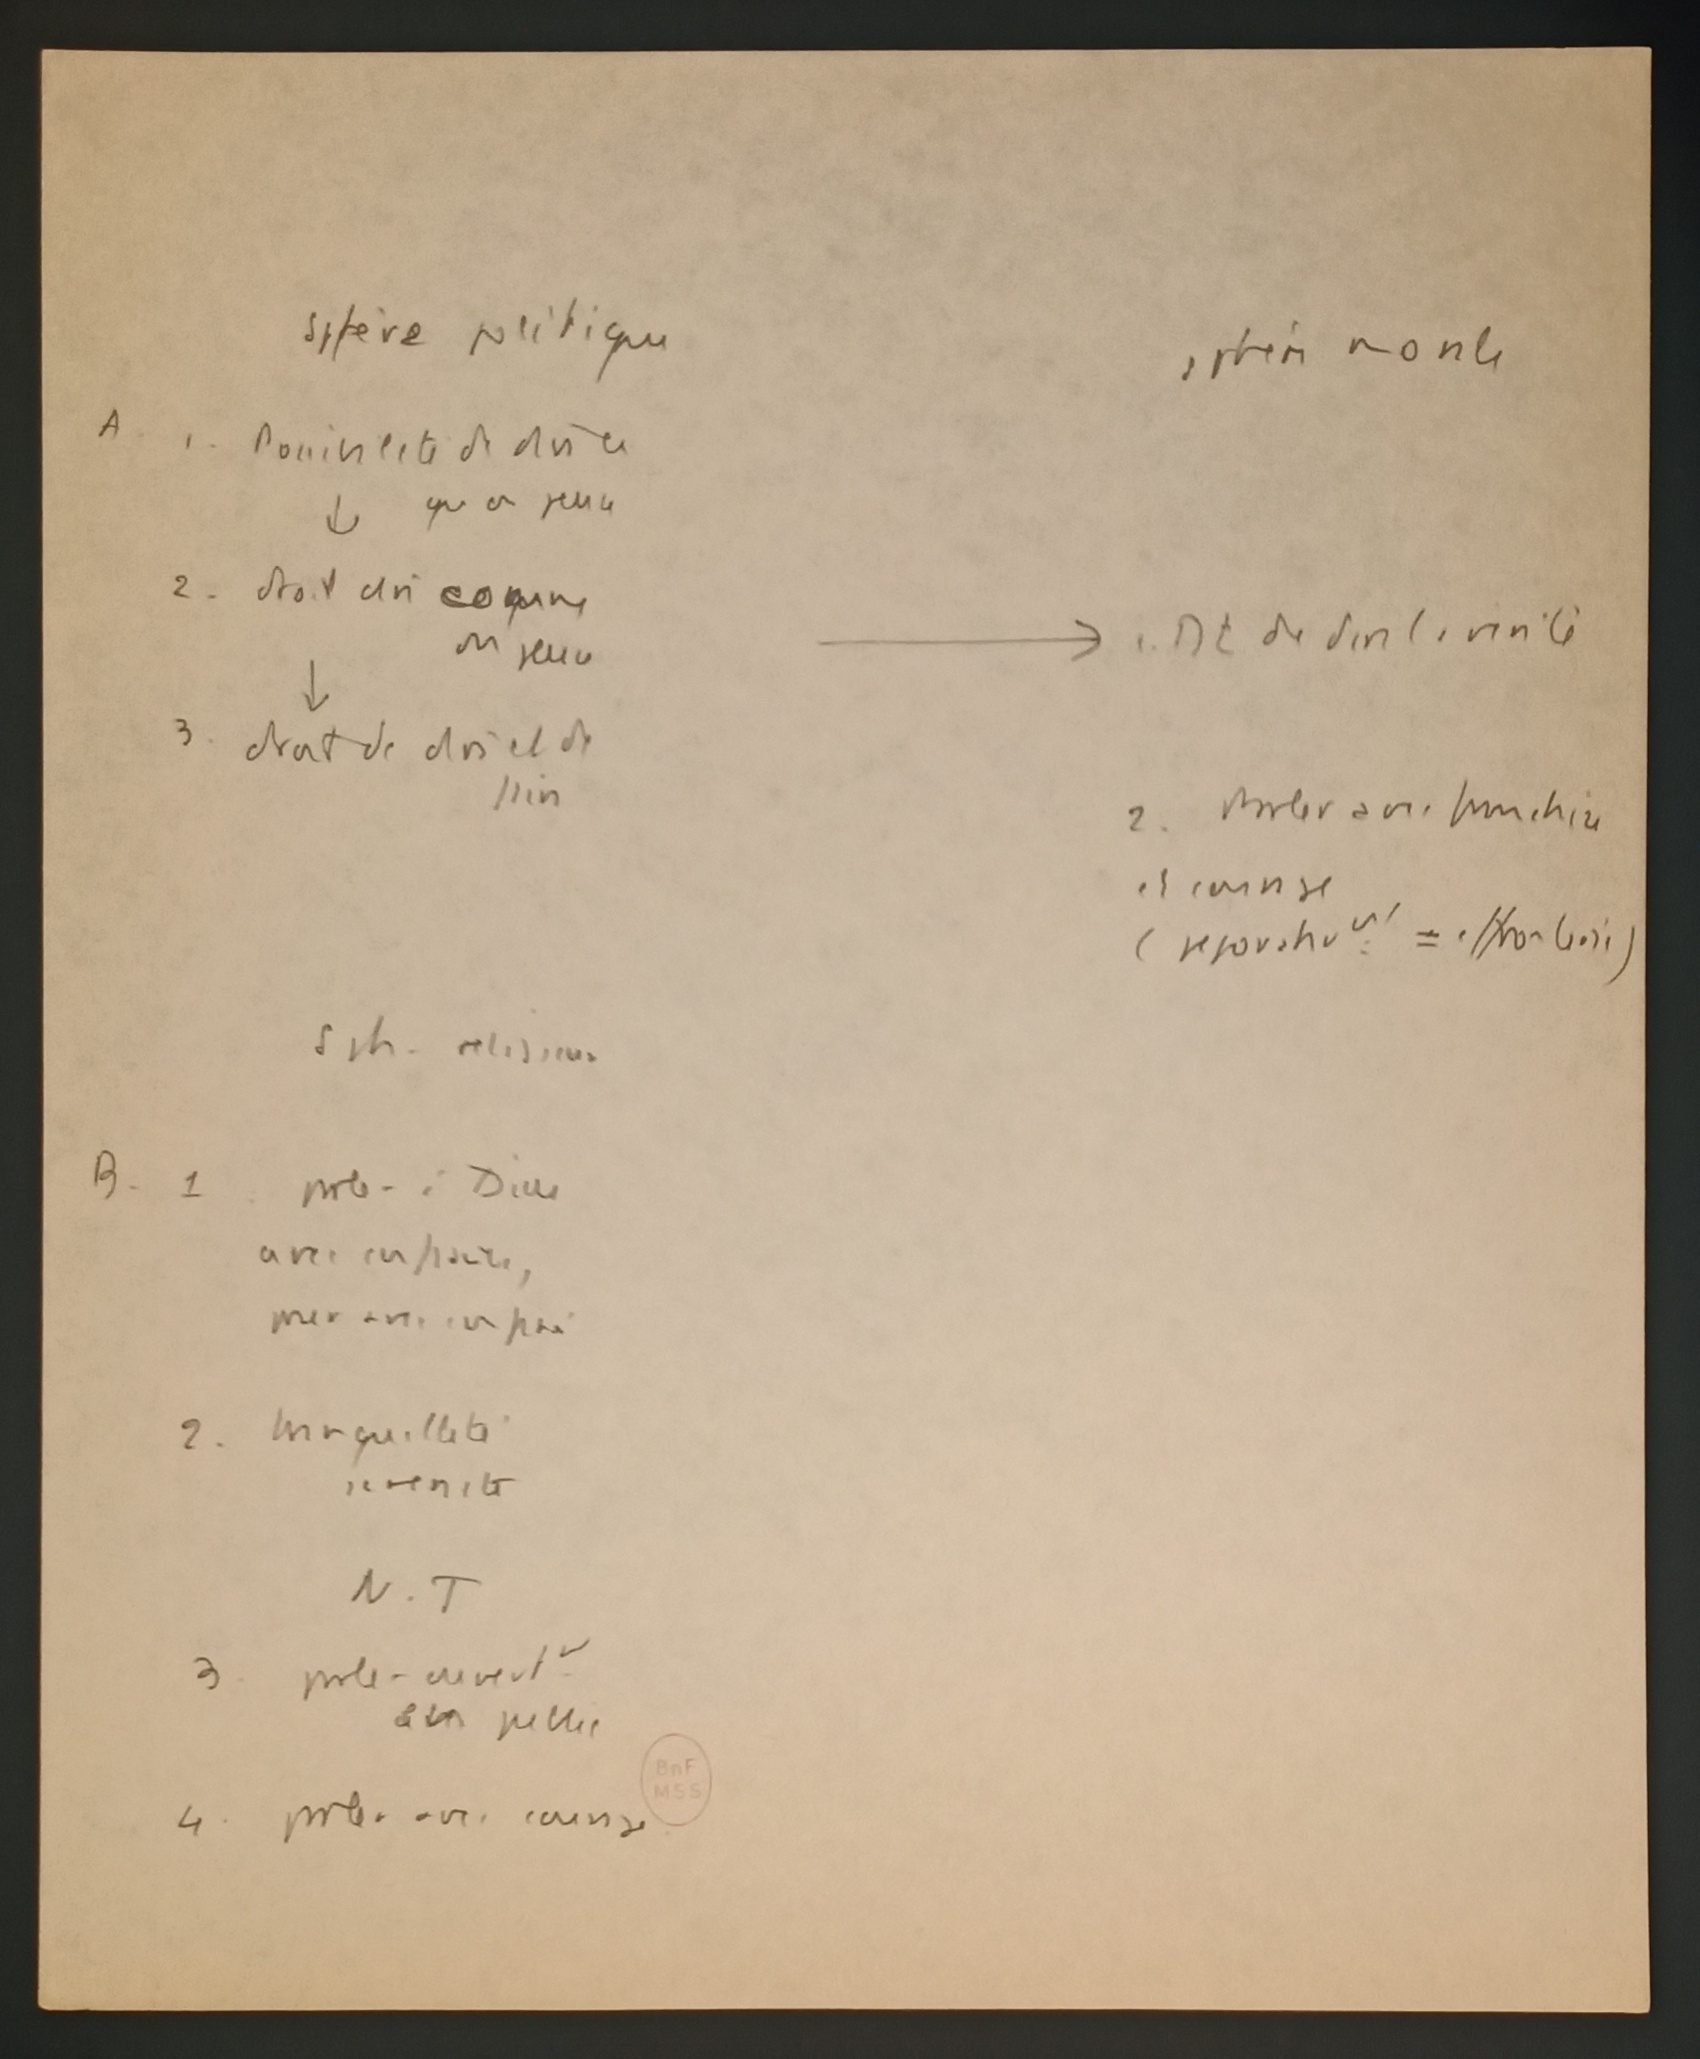 Sphère politique
sphère morale
A. 1. Possibilité de dire ce
↓ qu'on pense
2. droit dire comme
on pense
↓
3. droit de dire et de
faire
→ 1. Dt de dire la vérité
2. Parler avec franchise
et courage
( = effronterie)
Sph. religieuse
B. 1. parler à Dieu
avec confiance,
prier avec confiance
2. tranquillité
sérénité
N.T
3. parler ouvert
public
4. parler avec courage
BnF
MSS